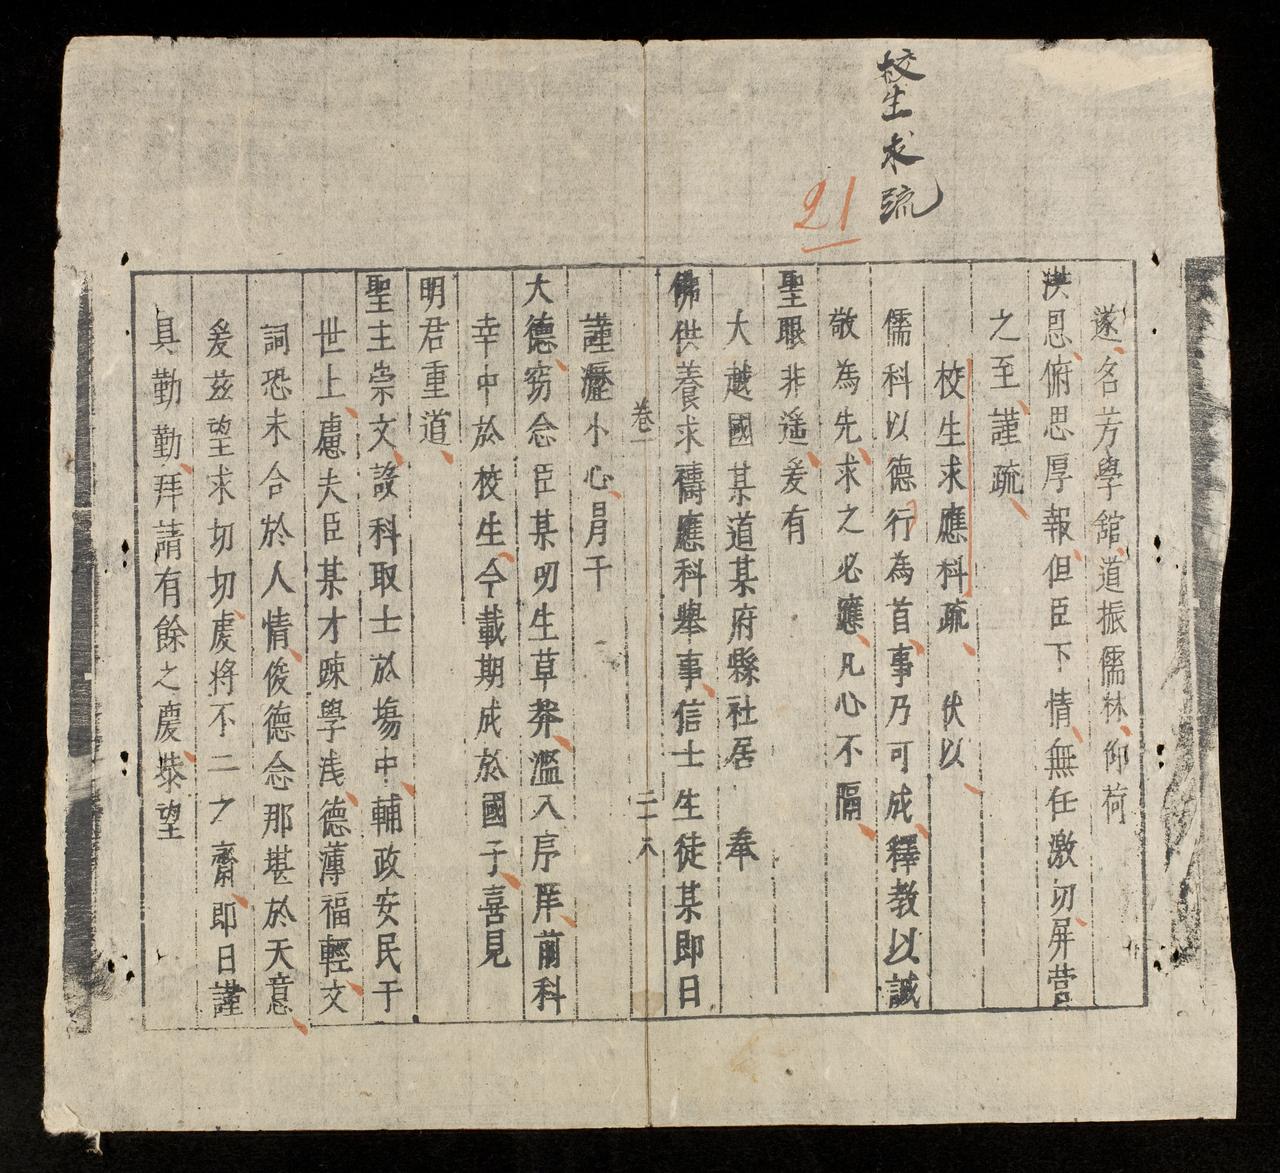 校生求疏
21
遂名芳學舘道振儒林仰荷
洪恩俯思厚報但臣下情無任激切屏营
之至謹疏
校生求應科疏　伏以
儒科以德行為首事乃可成釋教以誠
敬為先求之必應凡心不隔
聖眼非遥爰有
大越國某道某府縣社居　奉
佛供養求禱應科舉事信士生徒某即日
卷一　二十八
謹瀝小心冐干
大德窃念臣某明生草莽濫入序庠前科
幸中於校生今載期成於國子喜見
明君重道
聖主崇文設科取士於場中輔政安民于
世上慮夫臣某才踈學浅德薄福輕文
詞恐未合於人情俊德念那堪於天意
爰兹望求切切虔将不二之齋即日謹
具勤勤拜請有餘之慶恭望